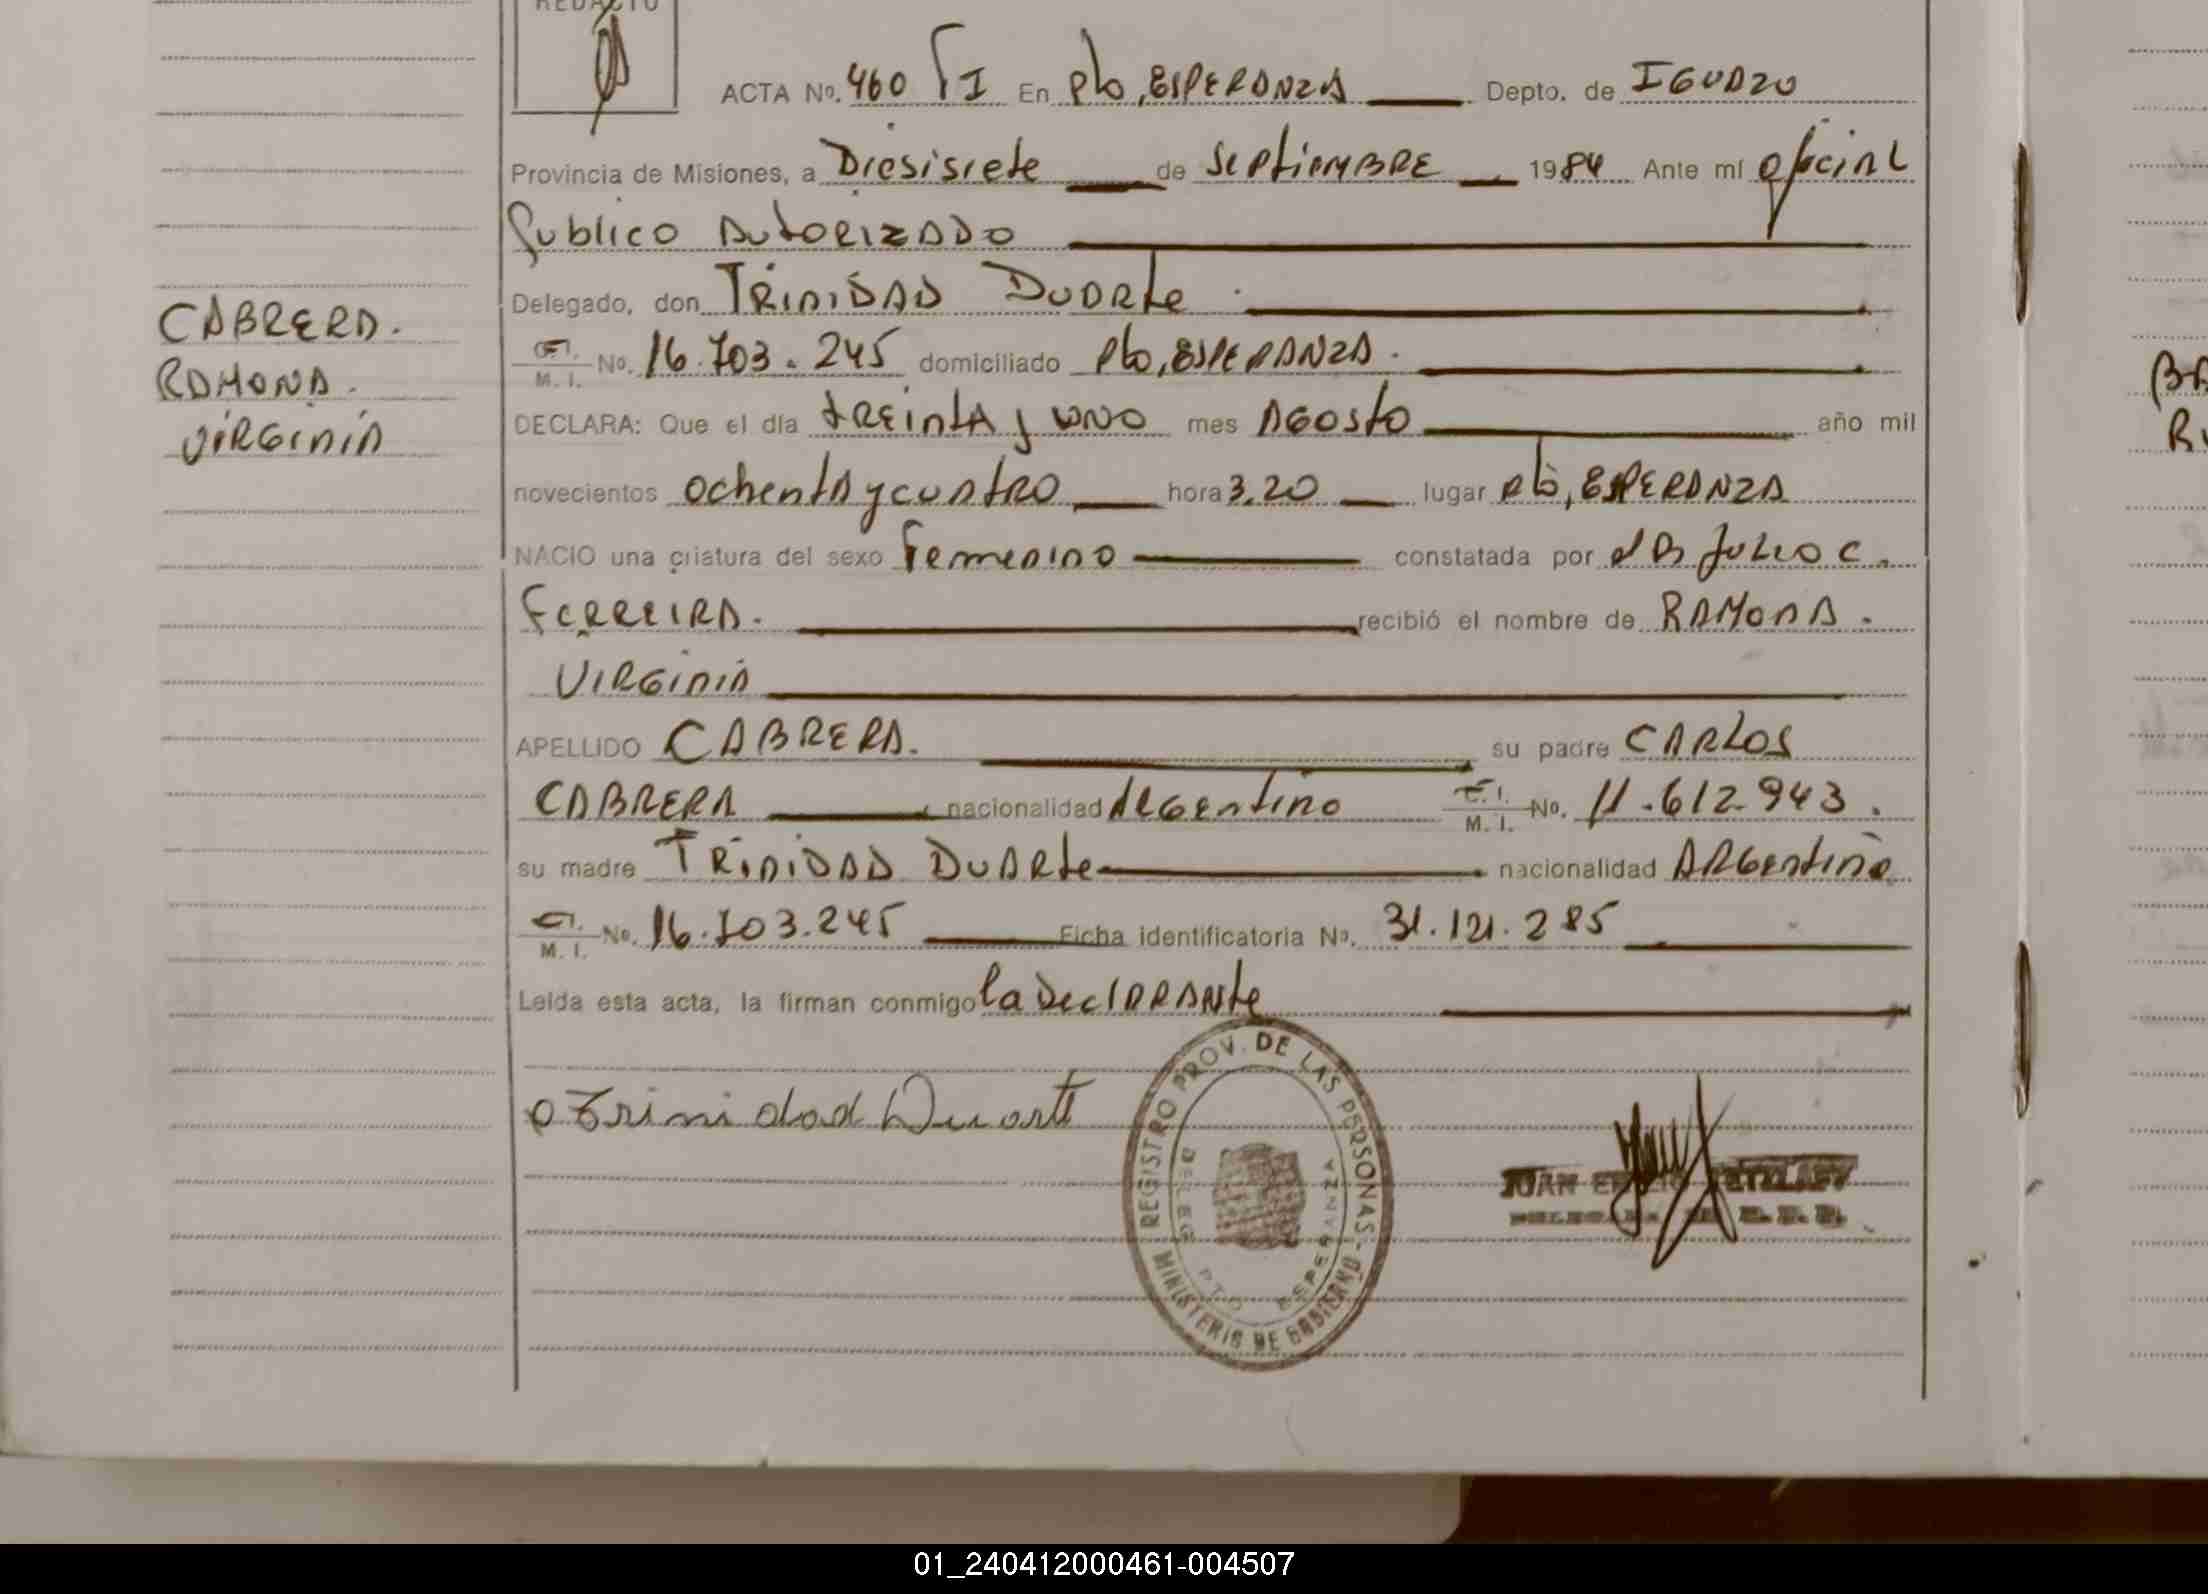 REDACTO
ACTA No. 460 TI En Pto, ESPERANZA Depto. de IGUAZU
Provincia de Misiones, a Diesisiete de Septiembre 1984 Ante mí oficial
Publico Autorizado
Delegado, don TRINIDAD DUARte
C.I. M. I. No. 16.703.245 domiciliado Pto, ESPERANZA.
CABRERA.
RAMONA.
VIRGINIA
DECLARA: Que el día treinta y uno mes Agosto año mil
novecientos ochenta y cuatro hora 3.20 lugar Pto, ESPERANZA
NACIO una criatura del sexo Femenino constatada por el DR Julio C.
FERREIRA. recibió el nombre de RAMONA.
VIRGINIA
APELLIDO CABRERA. su padre CARLOS
CABRERA nacionalidad ARGentino C.I. M. I. No. 11.612.943.
su madre TRINIDAD DUARte nacionalidad ARGentina
C.I. M. I. No. 16.703.245 Ficha identificatoria No. 31.121.285
Leída esta acta, la firman conmigo la Declarante
Trinidad Duarte
REGISTRO PROV. DE LAS PERSONAS - MINISTERIO DE GOBIERNO
DELEG. PTO. ESPERANZA
JUAN
01_240412000461-004507